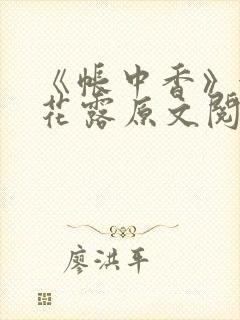 《帐中香》
花露原文阅
廖洪平